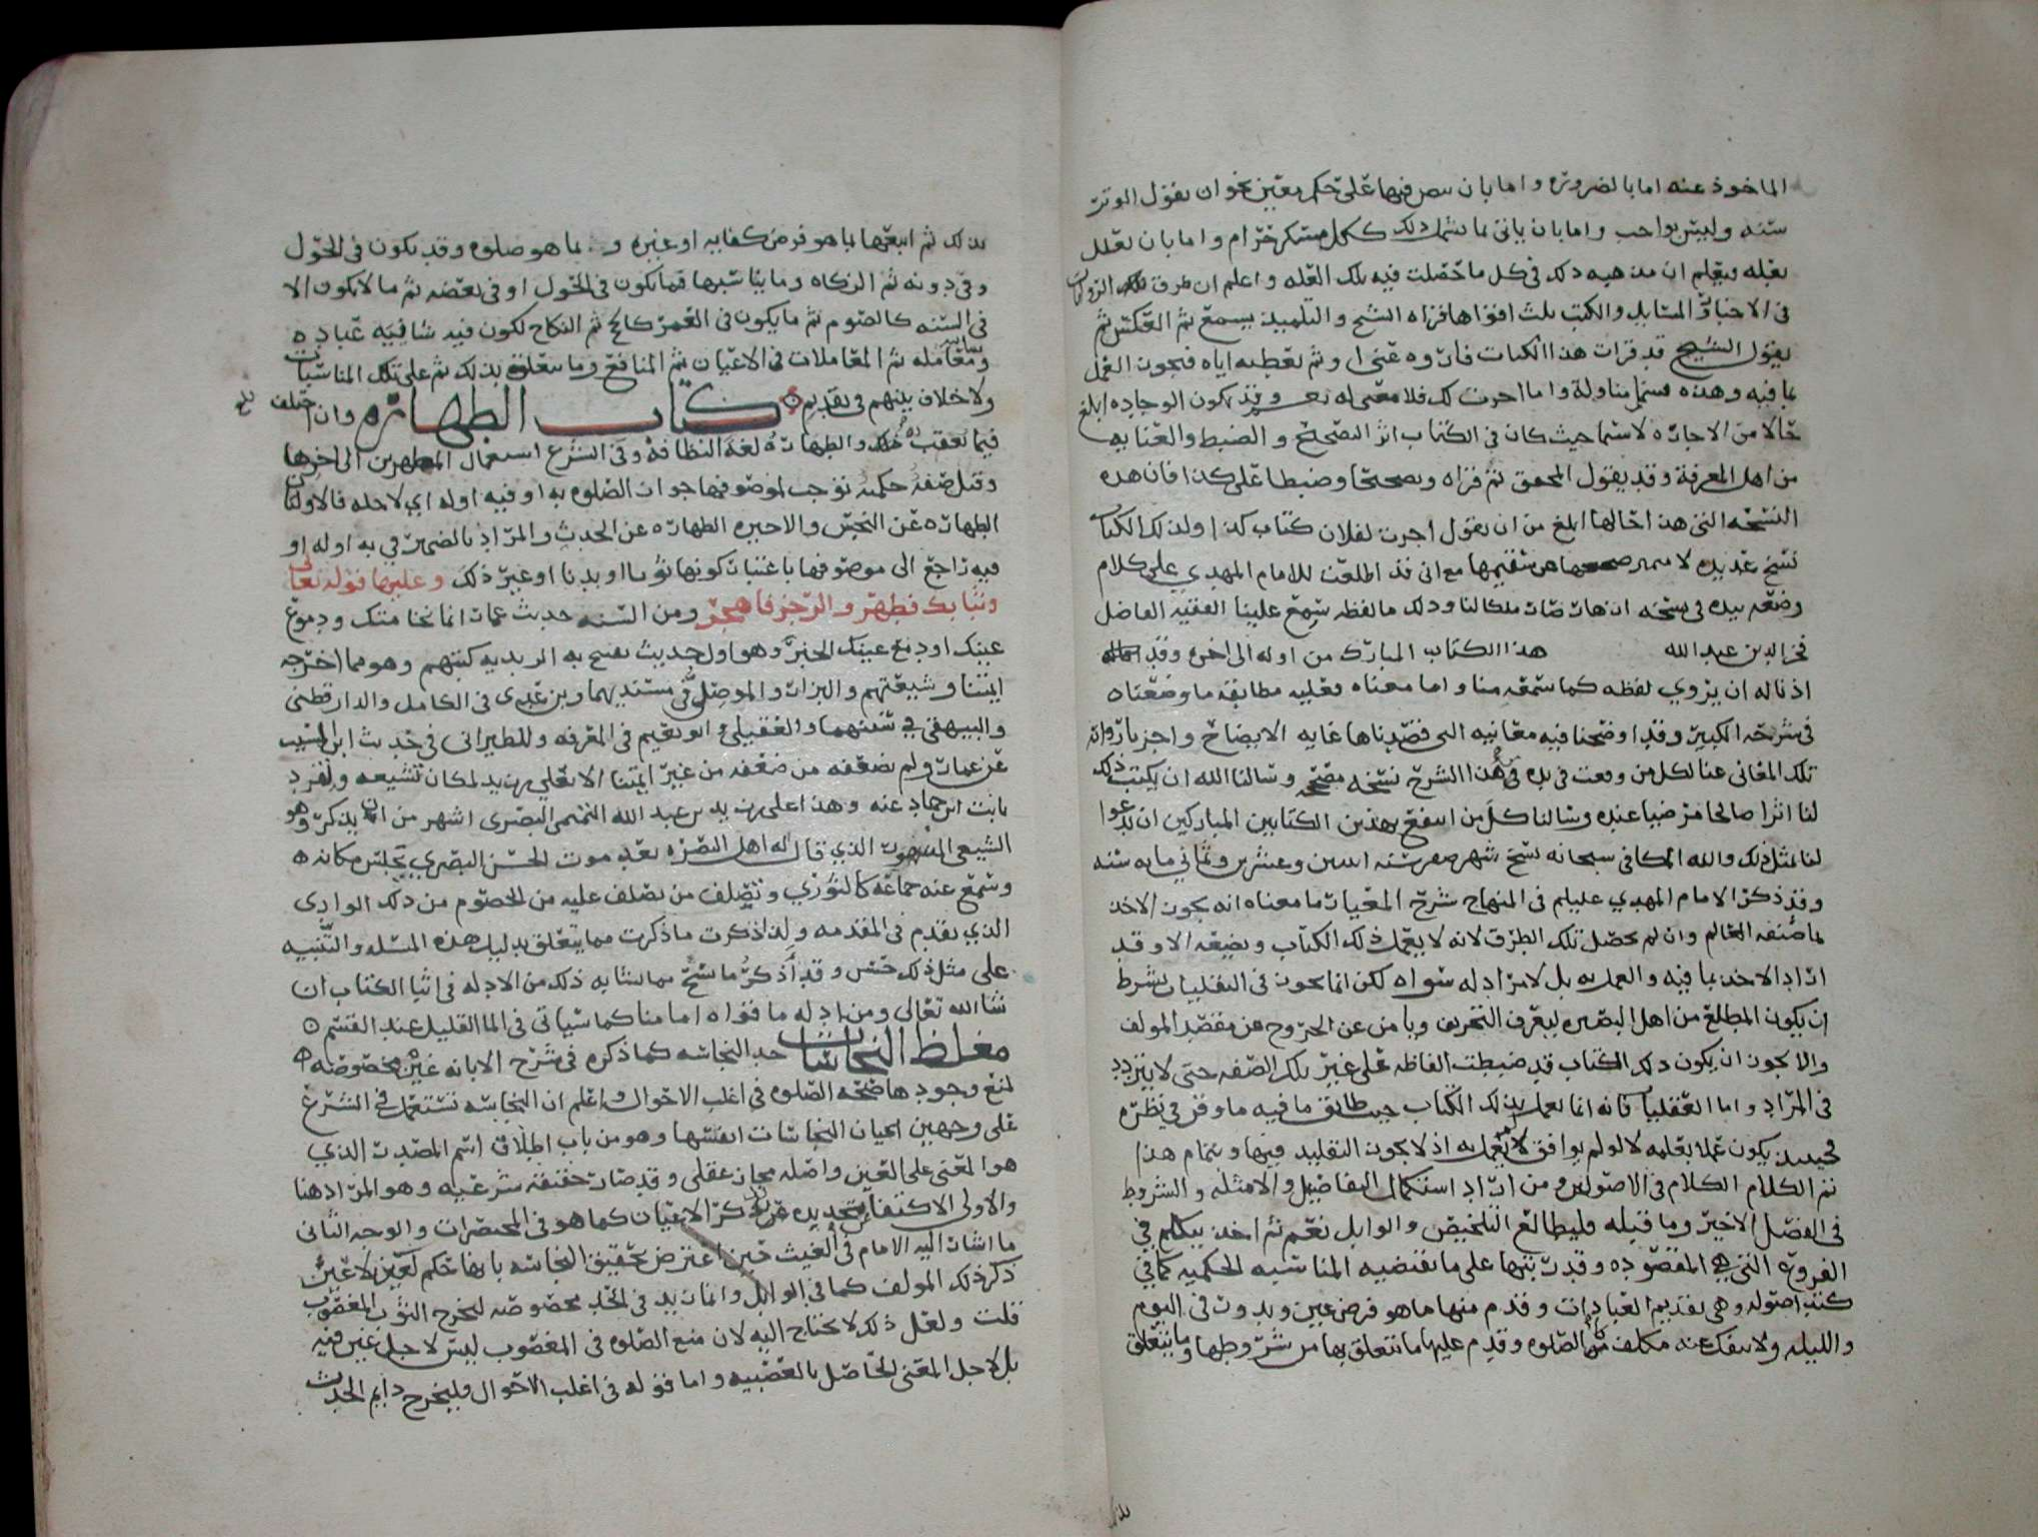 الماخوذ عنه اما بالضروره واما بان ينص فيها على حكم معين نحو ان يقول الوتر
سنه وليس بواجب واما بان ياتى بما يشمل ذلك ككل مسكر حرام واما بان يعلل
بعله ويعلم ان مذهبه ذلك فى كل ما حصلت فيه تلك العله واعلم ان طرق تلك الروايات
فى الاخبار والمسايل والكتب ثلث اقواها قراه الشيخ والتلميذ يسمع ثم العكس ثم
يقول الشيخ قد قرات هذا الكتاب فارووه عنى او ثم يعطيه اياه فيجوز العمل
بما فيه وهذه تسمى مناولة واما اجزت لك فلا معنى له نعم وقد تكون الوجاده ابلغ
حالا من الاجازه لاسيما حيث كان فى الكتاب اثر التصحيح والضبط والعنايه
من اهل المعرفة وقد يقول المحقق ثم قراه وتصحيحا وضبطا على كذا فان هذه
النسخه التى هذا حالها ابلغ من ان يقول اجزت لفلان كتاب كذا ولذلك الكتاب
نسخ عديده لا يتميز صحيحها من سقيمها مع انى قد اطلعت للامام المهدي على كلام
وضعه بيده فى نسخه ازهار صارت ملكا لنا وذلك ما لفظه سمع علينا الفقيه الفاضل
فخر الدين عبد الله هذا الكتاب المبارك من اوله الى اخره وقد
اذنا له ان يروي لفظه كما سمعه منا واما معناه فعليه مطابقة ما وضعناه
فى شرحه الكبير وقد اوضحنا فيه معانيه التى قصدناها غايه الايضاح واجزنا روايه
تلك المعانى عنا لكل من وقعت فى يده من هذا الشرح نسخه مصححه وسالنا الله ان يكتب ذلك
لنا اثرا صالحا مرضيا عنده وسالنا كل من انتفع بهذين الكتابين المباركين ان يدعوا
لنا لمثل ذلك والله المكافى سبحانه نسخ شهر صفر سنه اثنين وعشرين وثمانى مايه سنه
وقد ذكر الامام المهدي عليلم فى المنهاج شرح المعيار ما معناه انه يجوز الاخذ
بما صنفه العالم وان لم يحصل تلك الطرق لانه لا يعمل ذلك الكتاب ويضعه الا وقد
اراد الاخذ بما فيه والعمل به بل لا مراد له سواه لكن انما يجوز فى النقليات بشرط
ان يكون المطلع من اهل البصيره ليعرف التحريف ويامن عن الخروج من مقصد المولف
والا يجوز ان يكون ذلك الكتاب قد ضبطت الفاظه على غير تلك الصفه حتى لا يتردد
فى المراد واما العقليات فانه انما يعمل بذلك الكتاب حيث طابق ما فيه ما وقر في نظره
فحينئذ يكون عمله بعلمه لا لو لم يوافق لم يعمل به اذ لا يجوز التقليد فيها وبتمام هذا
تم الكلام الكلام فى الاصولين ومن اراد استكمال التفاصيل والامثله والشروط
فى الفصل الاخير وما قبله فليطالع التلخيص والوابل نعم ثم اخذ يتكلم في
الفروع التى هي المقصوده وقد رتبها على ما تقتضيه المناسبه الحكميه كما في
كتب اصوله وهى تقديم العبادات وقدم منها ما هو فرض عين ويدور فى اليوم
والليله ولا ينفك عنه مكلف وهى الصلوه وقدم عليها ما يتعلق بها من شروطها وما يتعلق
بذلك
بذلك ثم اتبعها بما هو فرض كفايه او غيره و بما هو صلوه وقد يكون فى الحول
وفى دونه ثم الزكاه وما يناسبها فما يكون فى الحول او فى بعضه ثم ما لا يكون الا
فى السنه كالصوم ثم ما يكون فى العمر كالحج ثم النكاح لكون فيه شايبه عباده
ومعامله ثم المعاملات فى الاعيان ثم المنافع وما يتعلق بذلك ثم على تلك المناسبات
ولا خلاف بينهم فى تقديم كتاب الطهاره وان اختلف
فيما تعقب ذلك والطهاره لغة النظافة وفى الشرع استعمال المطهرين الى اخرها
وقيل صفة حكمية توجب لموصوفها جواز الصلوه به او فيه اوله اي لاجله فالاولتان
الطهاره عن النجس والاخيره الطهاره عن الحدث والمراد بالضمير في به اوله او
فيه راجع الى موصوفها باعتبار كونها ثوبا او بدنا او غير ذلك وعليها قوله تعالى
وثيابك فطهر والرجز فاهجر ومن السنه حديث عمار انما نخامتك ودموع
عينيك او دمع عينيك الخبر وهو اول حديث تفتح به الزيديه كتبهم وهو مما اخرجه
ايمتنا وشيعتهم والبزار والموصلى فى مسنديهما وبن عدى فى الكامل والدارقطنى
والبيهقى في سننهما والعقيلى وابو نعيم فى المعرفه وللطبرانى فى حديث ابن المسيب
عن عمار ولم يضعفه من ضعفه من غير ايمتنا الا بعلى بن زيد لمكان تشيعه وتفرد
ثابت ابن حماد عنه وهذا على بن زيد بن عبد الله التميمى البصرى اشهر من ان يذكر وهو
الشيعى المشهور الذي قال له اهل البصره بعد موت الحسن البصري تجلس مكانه
وسمع عنه جماعه كالثوري وتصلف من تصلف عليه من الخصوم من ذلك الوادى
الذي تقدم فى المقدمه وانما ذكرت ما ذكرت مما يتعلق بدليل هذه المسله والتنبيه
على مثل ذلك حسن وقد اذكر ما سنح مما يشابه ذلك من الادله فى اثنا الكتاب ان
شا الله تعالى ومن ادله ما قواه امامنا كما سياتى فى الما القليل عند القسم
مغلظ النجاسات حد النجاسه كما ذكره فى شرح الابانه عين مخصوصه
لمنع وجودها صحه الصلوه فى اغلب الاحوال واعلم ان النجاسه تستعمل في الشرع
على وجهين اعيان النجاسات انفسها وهو من باب اطلاق اسم المصدر الذي
هو المعنى على العين واصله مجاز عقلى وقد صارت حقيقه شرعيه وهو المراد هنا
والاولى الاكتفا عن تحديده بذكر الاعيان كما هو فى المختصرات والوجه الثانى
ما اشار اليه الامام فى الغيث حين اعترض تحقيق النجاسه بانها حكم لعين لا عين
ذكر ذلك المولف كما فى الوابل وانما زيد فى الحد مخصوصه ليخرج الثوب المغصوب
قلت ولعل ذلك لا يحتاج اليه لان منع الصلوه فى المغصوب ليس لاجل عين فيه
بل لاجل المعنى الحاصل بالغصبيه واما قوله فى اغلب الاحوال فليخرج دايم الحدث